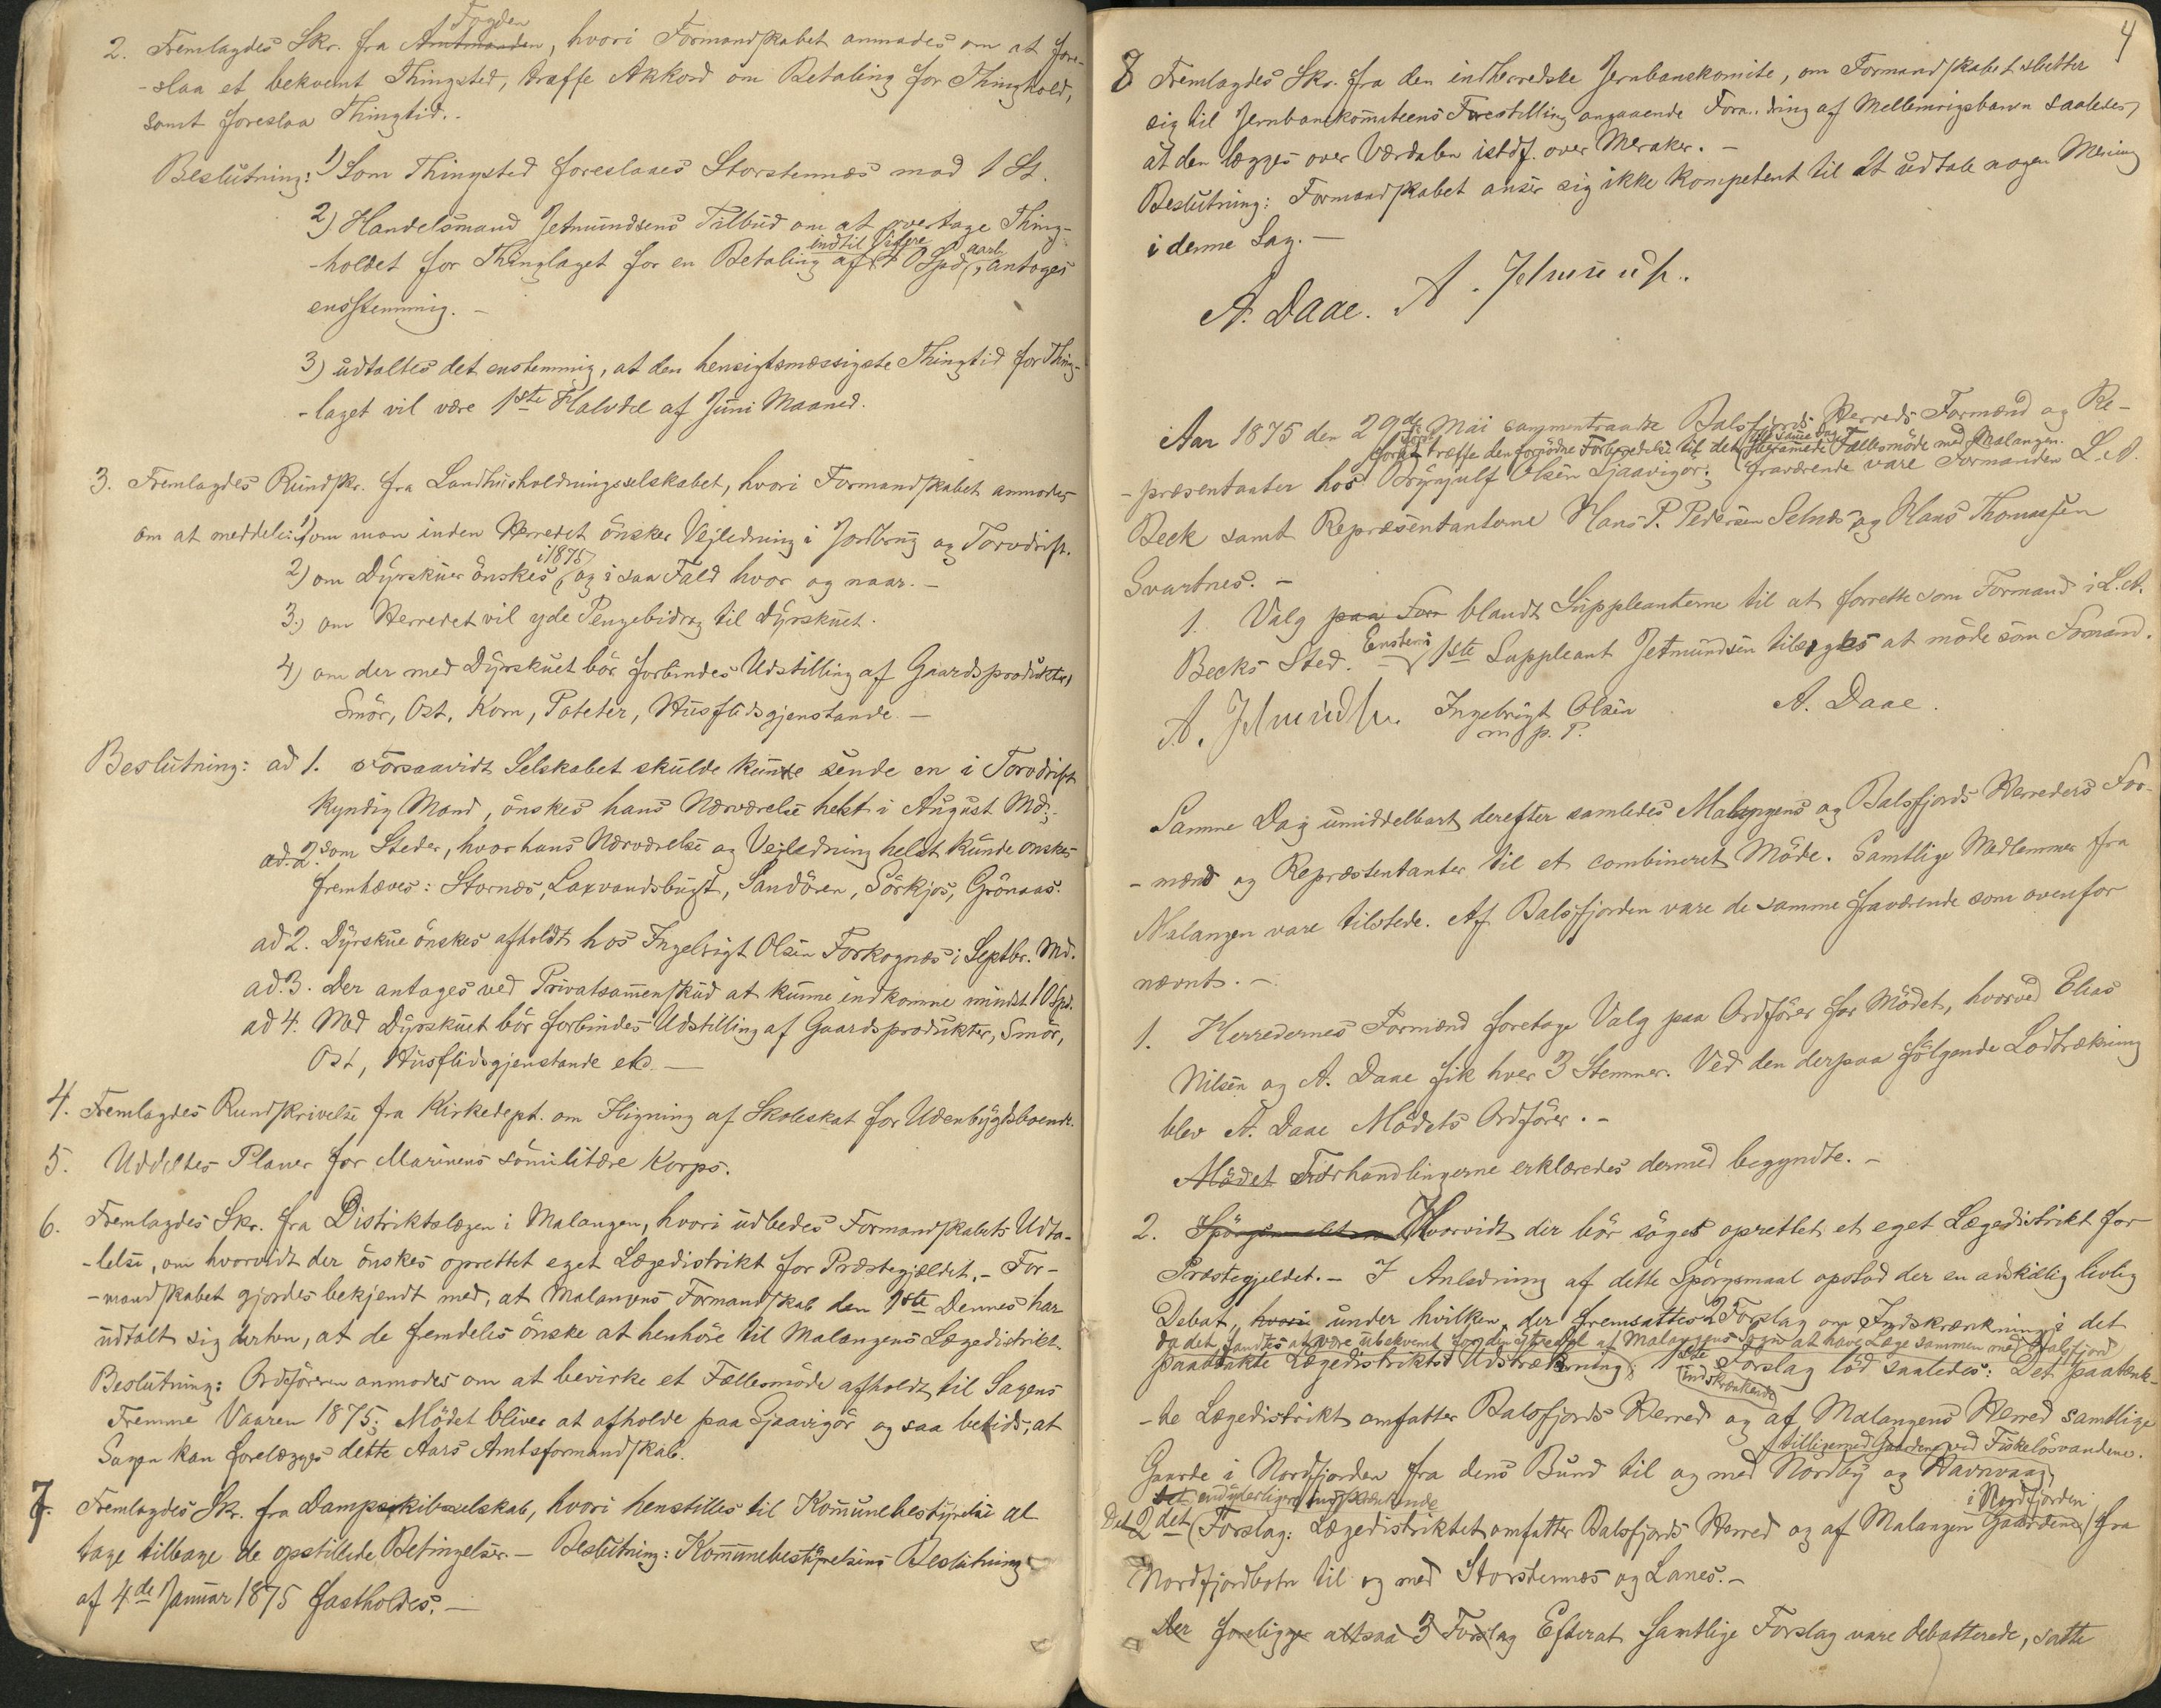 2. Fremlagdes Skr. fra Amtmanden Fogden, hvori Formandskabet anmodes om at fore-
-slaa et bekvemt Thingsted, træffe Akkord om Betaling for Thinghold,
samt foreslaa Thingtid.
Beslutning: 1) Som Thingsted foreslaaes Storstennæs mod 1 St.
2) Handelsmand Jetmundsens Tilbud om at overtage Thing-
-holdet for Thinglaget for en Betaling indtil Videre af 10 Spd aarl., antoges
ensstemmig. -
3) udtaltes det enstemmig, at den hensigtsmæssigste Thingtid for Thing-
-laget vil være 1ste Halvdel af Juni Maaned.
3. Fremlagdes Rundskr. fra Landhusholdningsselskabet, hvori Formandskabet anmodes
om at meddele: 1) om man inden Herredet önsker Vejledning i Jordbrug og Torvdrift.
2) om Dyrskuer önskes i 1875 og i saa Fald hvor og naar. -
3.) om Herredet vil yde Pengebidrag til Dyrskuet.
4) om der med Dyrskuet bör forbindes Udstilling af Gaardsprodukter,
Smör, Ost, Korn, Poteter, Husflidsgjenstande. -
Beslutning: ad 1. Forsaavidt Selskabet skulde kunne sende en i Torvdrift
kyndig Mand, önskes hans Nærværelse helst i August Md.;
ad. 2. som Steder, hvor hans Nærværelse og Vejledning helst kunde önskes
fremhæves: Stornæs, Laxvandsbugt, Sandören, Sörkjos, Grönaas.
ad 2. Dyrskue önskes afholdt hos Ingebrigt Olsen Forkognæs i Septbr. Md.
ad. 3. Der antages ved Privatsammenskud at kunne indkomme mindst 10 Spd.
ad 4. Med Dyrskuet bör forbindes Udstilling af Gaardsprodukter, Smör,
Ost, Husflidsgjenstande etc. -
4. Fremlagdes Rundskrivelse fra Kirkedept. om Iligning af Skoleskat for Udenbygdsboende.
5. Uddeltes Planer for Marinens sömilitære Korps.
6. Fremlagdes Skr. fra Distriktslægen i Malangen, hvori udbedes Formandskabets Udta-
-lelse, om hvorvidt der önskes oprettet eget Lægedistrikt for Præstegjældet. - For-
-mandskabet gjordes bekjendt med, at Malangens Formandskab den 1ste Dennes har
udtalt sig derhen, at de fremdeles önske at henhöre til Malangens Lægedistrikt.
Beslutning: Ordföreren anmodes om at bevirke et Fællesmöde afholdt til Sagens
Fremme Vaaren 1875; Mödet bliver at afholde paa Sjaavigör og saa betids, at
Sagen kan forelægges dette Aars Amtsformandskab.
7. Fremlagdes Skr. fra Dampskibsselskab, hvori henstilles til Kommunebestyrelsen at
tage tilbage de opstillede Betingelser. - Beslutning: Kommunebestyrelsens Beslutning
af 4de Januar 1875 fastholdes. -
4
8 Fremlagdes Skr. fra den indherredske Jernbanekomite, om Formandskabet slutter
sig til Jernbanekomiteens Forestilling angaaende Forandring af Mellemrigsbanen saaledes,
at den lægges over Værdalen istdf. over Meraker. -
Beslutning: Formandskabet anser sig ikke kompetent til at udtale nogen Mening
i denne Sag. -
A. Daae. A. Jetmunds.
Aar 1875 den 29de Mai sammentraadte Balsfjords Herreds Formænd og Re-
for at træffe den fornödne Forberedelse til det samme Dag berammede Fællesmöde med Malangen.
-præsentanter hos Brynjulf Olsen Sjaavigör; fraværende vare Formanden L. A.
Beck samt Repræsentanterne Hans P. Pedersen Selnæs og Hans Thomassen
Svartnes. -
1. Valg paa For blandt Suppleanterne til at forrette som Formand i L. A.
Becks Sted. - Enstem. 1ste Suppleant Jetmundsen tilsagdes at möde som Formand.
A. Jetmunds. Ingebrigt Olsen A. Daae.
m. p. P.
Samme Dag umiddelbart derefter samledes Malangens og Balsfjords Herreders For-
-mænd og Repræsentanter til et combineret Möde. Samtlige Medlemmer fra
Malangen vare tilstede. Af Balsfjorden vare de samme fraværende som ovenfor
nævnt. -
1. Herredernes Formænd foretoge Valg paa Ordförer for Mödet, hvorved Elias
Nilsen og A. Daae fik hver 3 Stemmer. Ved den derpaa fölgende Lodtrækning
blev A. Daae Mödets Ordförer. -
Mödet Forhandlingerne erklæredes dermed begyndte. -
2. Spörgsmaalet om Hvorvidt der bör söges oprettet et eget Lægedistrikt for
Præstegjeldet. - I Anledning af dette Spörgsmaal opstod der en adskillig livlig
Debat, hvori under hvilken der fremsattes 2 Forslag om Indskrænkning i det
da det fandtes at være ubekvemt for den ytre Del af Malangens Sogn at have Læge sammen med Balsfjord
paatænkte Lægedistrikts Udstrækning; 1ste indskrænkende Forslag löd saaledes: Det paatænk-
-te Lægedistrikt omfatter Balsfjords Herred og af Malangens Herred samtlige
tilligemed Gaardene ved Fiskelösvandene.
Gaarde i Nordfjorden fra dens Bund til og med Nordby og Havnvaag
det endyderligere indskrænkende
Det 2det Forslag: Lægedistriktet omfatter Balsfjords Herred og af Malangen Gaardene i Nordfjorden fra
Nordfjordbotn til og med Storstennæs og Lanes. -
Der foreligger altsaa 3 Forslag Efterat samtlige Forslag vare debatterede, satte